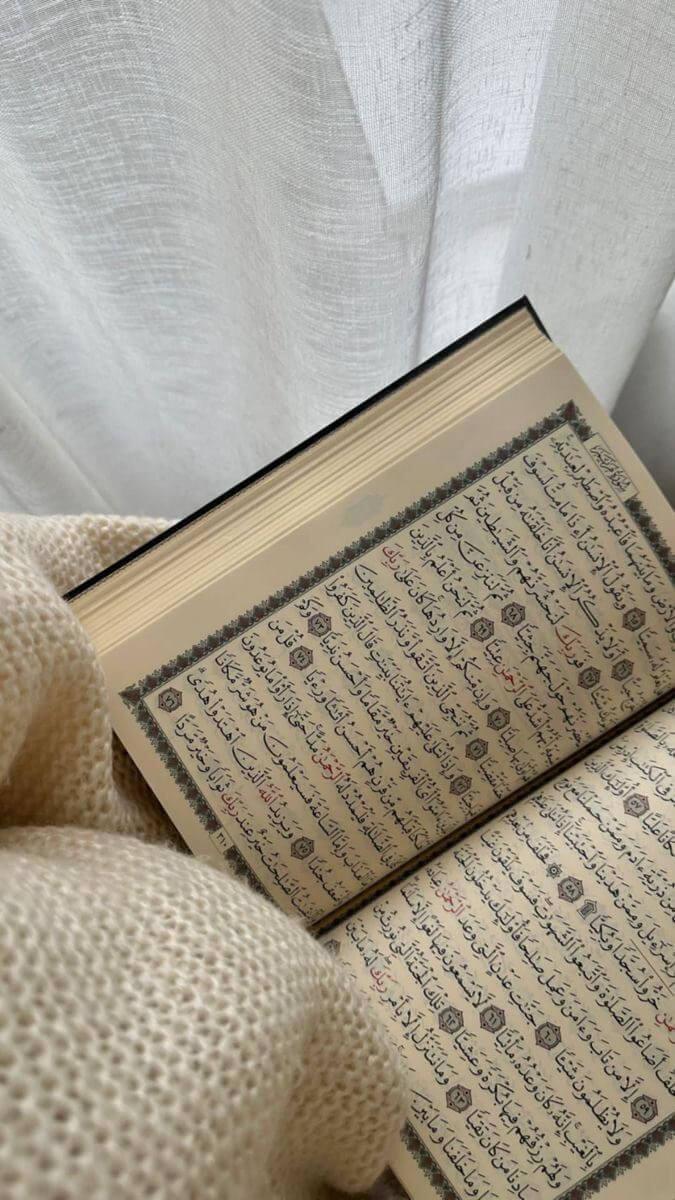 فِي ٱلْكِتَٰبِ
أُو۟لَٰٓئِكَ ٱلَّذِينَ
مِن ذُرِّيَّةِ ءَادَمَ وَمِمَّنْ حَمَلْنَا مَعَ
وَإِسْرَٰٓءِيلَ وَمِمَّنْ هَدَيْنَا وَٱجْتَبَيْنَآ إِذَا تُتْلَىٰ
خَرُّوا۟ سُجَّدًا وَبُكِيًّا ۩ ٥٨ ۞ فَخَلَفَ مِنۢ
خَلْفٌ أَضَاعُوا۟ ٱلصَّلَوٰةَ وَٱتَّبَعُوا۟ ٱلشَّهَوَٰتِ فَسَوْفَ يَلْقَوْنَ غَيًّا
٥٩ إِلَّا مَن تَابَ وَءَامَنَ وَعَمِلَ صَٰلِحًا فَأُو۟لَٰٓئِكَ يَدْخُلُونَ ٱلْجَنَّةَ
وَلَا يُظْلَمُونَ شَيْـًٔا ٦٠ جَنَّٰتِ عَدْنٍ ٱلَّتِي وَعَدَ ٱلرَّحْمَٰنُ
بِٱلْغَيْبِ إِنَّهُۥ كَانَ وَعْدُهُۥ مَأْتِيًّا ٦١ لَّا يَسْمَعُونَ فِيهَا لَغْوًا إِلَّا سَلَٰمًا
وَلَهُمْ رِزْقُهُمْ فِيهَا بُكْرَةً وَعَشِيًّا ٦٢ تِلْكَ ٱلْجَنَّةُ ٱلَّتِي نُورِثُ مِنْ
عِبَادِنَا مَن كَانَ تَقِيًّا ٦٣ وَمَا نَتَنَزَّلُ إِلَّا بِأَمْرِ رَبِّكَ لَهُۥ مَا بَيْنَ
وَمَا خَلْفَنَا وَمَا بَيْنَ
سُورَةُ مَرْيَمَ
وَٱلْأَرْضِ وَمَا بَيْنَهُمَا فَٱعْبُدْهُ وَٱصْطَبِرْ لِعِبَٰدَتِهِۦ
لَهُۥ سَمِيًّا ٦٥ وَيَقُولُ ٱلْإِنسَٰنُ أَءِذَا مَا مِتُّ لَسَوْفَ
حَيًّا ٦٦ أَوَلَا يَذْكُرُ ٱلْإِنسَٰنُ أَنَّا خَلَقْنَٰهُ مِن قَبْلُ
شَيْـًٔا ٦٧ فَوَرَبِّكَ لَنَحْشُرَنَّهُمْ وَٱلشَّيَٰطِينَ ثُمَّ
لَنُحْضِرَنَّهُمْ حَوْلَ جَهَنَّمَ جِثِيًّا ٦٨ ثُمَّ لَنَنزِعَنَّ مِن كُلِّ
أَيُّهُمْ أَشَدُّ عَلَى ٱلرَّحْمَٰنِ عِتِيًّا ٦٩ ثُمَّ لَنَحْنُ أَعْلَمُ بِٱلَّذِينَ
أَوْلَىٰ بِهَا صِلِيًّا ٧٠ وَإِن مِّنكُمْ إِلَّا وَارِدُهَا كَانَ عَلَىٰ رَبِّكَ
مَّقْضِيًّا ٧١ ثُمَّ نُنَجِّي ٱلَّذِينَ ٱتَّقَوا۟ وَّنَذَرُ ٱلظَّٰلِمِينَ
٧٢ وَإِذَا تُتْلَىٰ عَلَيْهِمْ ءَايَٰتُنَا بَيِّنَٰتٍ قَالَ ٱلَّذِينَ كَفَرُوا۟
أَيُّ ٱلْفَرِيقَيْنِ خَيْرٌ مَّقَامًا وَأَحْسَنُ نَدِيًّا ٧٣ وَكَمْ
أَهْلَكْنَا قَبْلَهُم مِّن قَرْنٍ هُمْ أَحْسَنُ أَثَٰثًا وَرِءْيًا ٧٤ قُلْ مَن
كَانَ فِي ٱلضَّلَٰلَةِ فَلْيَمْدُدْ لَهُ ٱلرَّحْمَٰنُ مَدًّا حَتَّىٰٓ إِذَا رَأَوْا۟ مَا يُوعَدُونَ
إِمَّا ٱلْعَذَابَ وَإِمَّا ٱلسَّاعَةَ فَسَيَعْلَمُونَ مَنْ هُوَ شَرٌّ مَّكَانًا
وَأَضْعَفُ جُندًا ٧٥ وَيَزِيدُ ٱللَّهُ ٱلَّذِينَ ٱهْتَدَوْا۟ هُدًى
وَٱلْبَٰقِيَٰتُ ٱلصَّٰلِحَٰتُ خَيْرٌ عِندَ رَبِّكَ ثَوَابًا وَخَيْرٌ مَّرَدًّا ٧٦
٣١٠